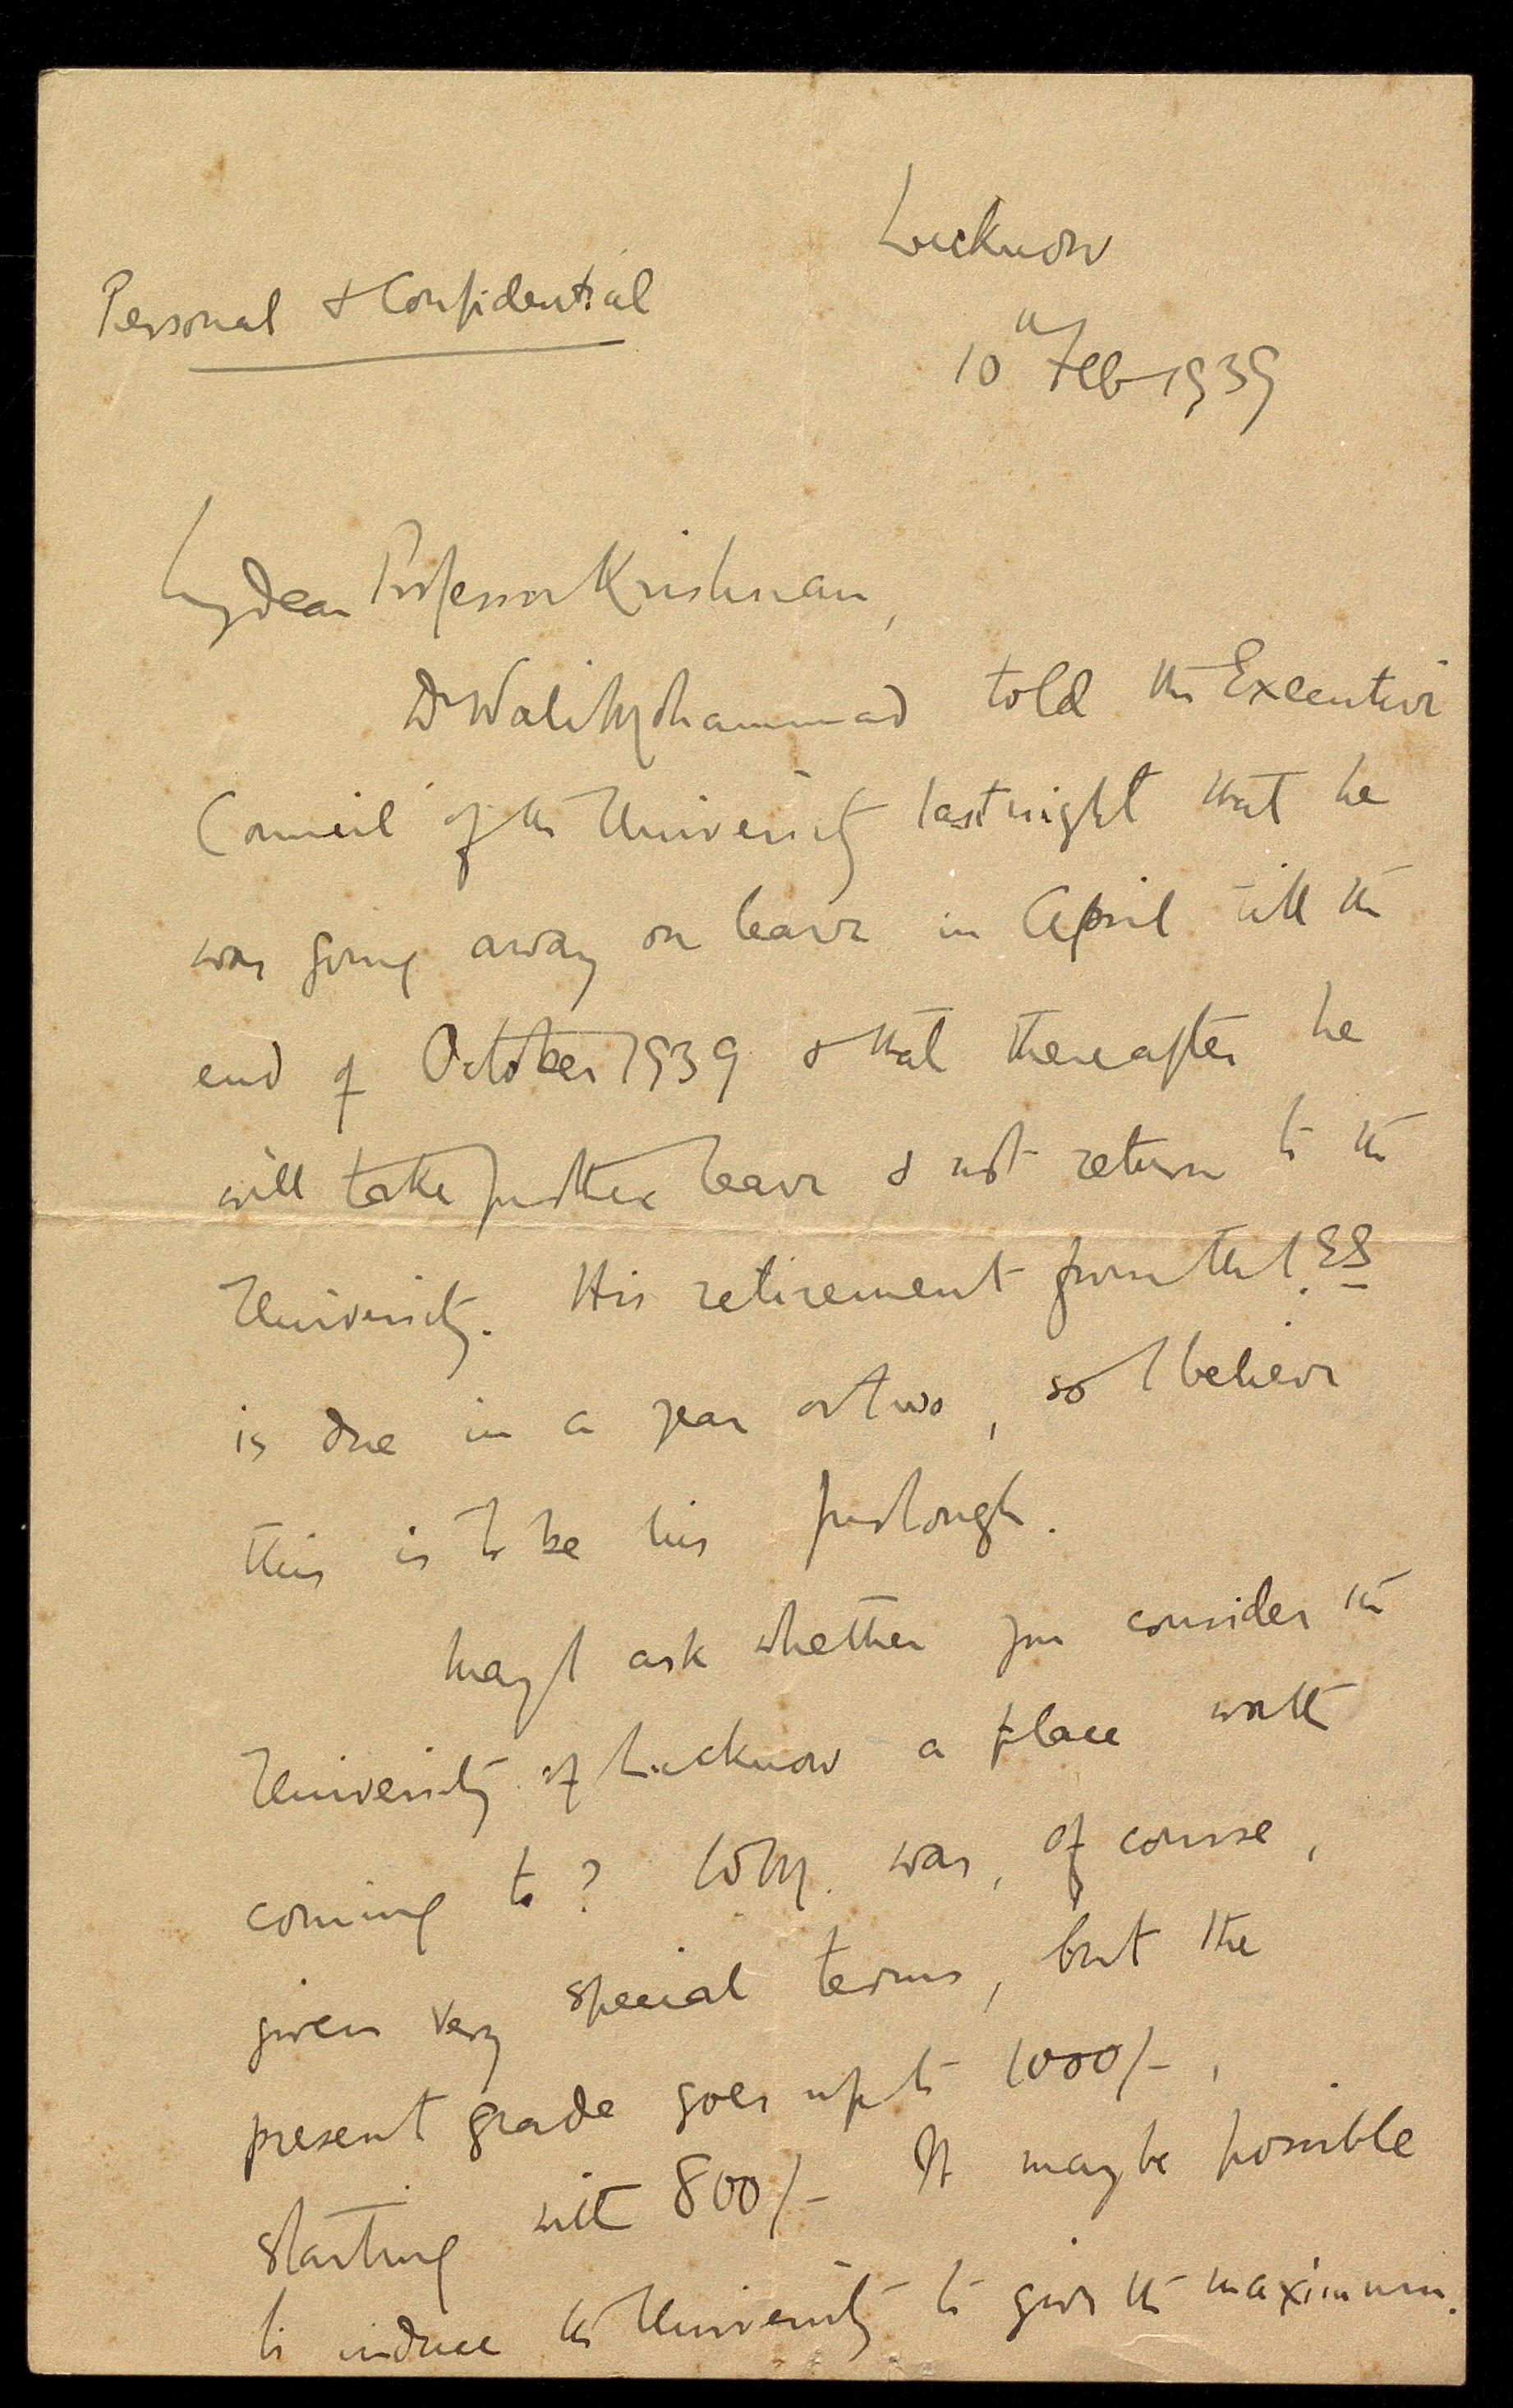 Lucknow
Personal & Confidential
10th Feb 1939
My dear Professor Krishnan,
Dr Wali Mohammad told the Executive
Council of the University last night that he
was going away on leave in April till the
end of October 1939 & that thereafter he
will take further leave & not return to the
University. His retirement from the I.E.S
is due in a year or two, so I believe
this is to be his furlough.
May I ask whether you consider the
University of Lucknow a place worth
coming to? W.M. was, of course,
given very special terms, but the
present grade goes up to 1000/-,
starting with 800/- It may be possible
to induce the University to give the maximum.